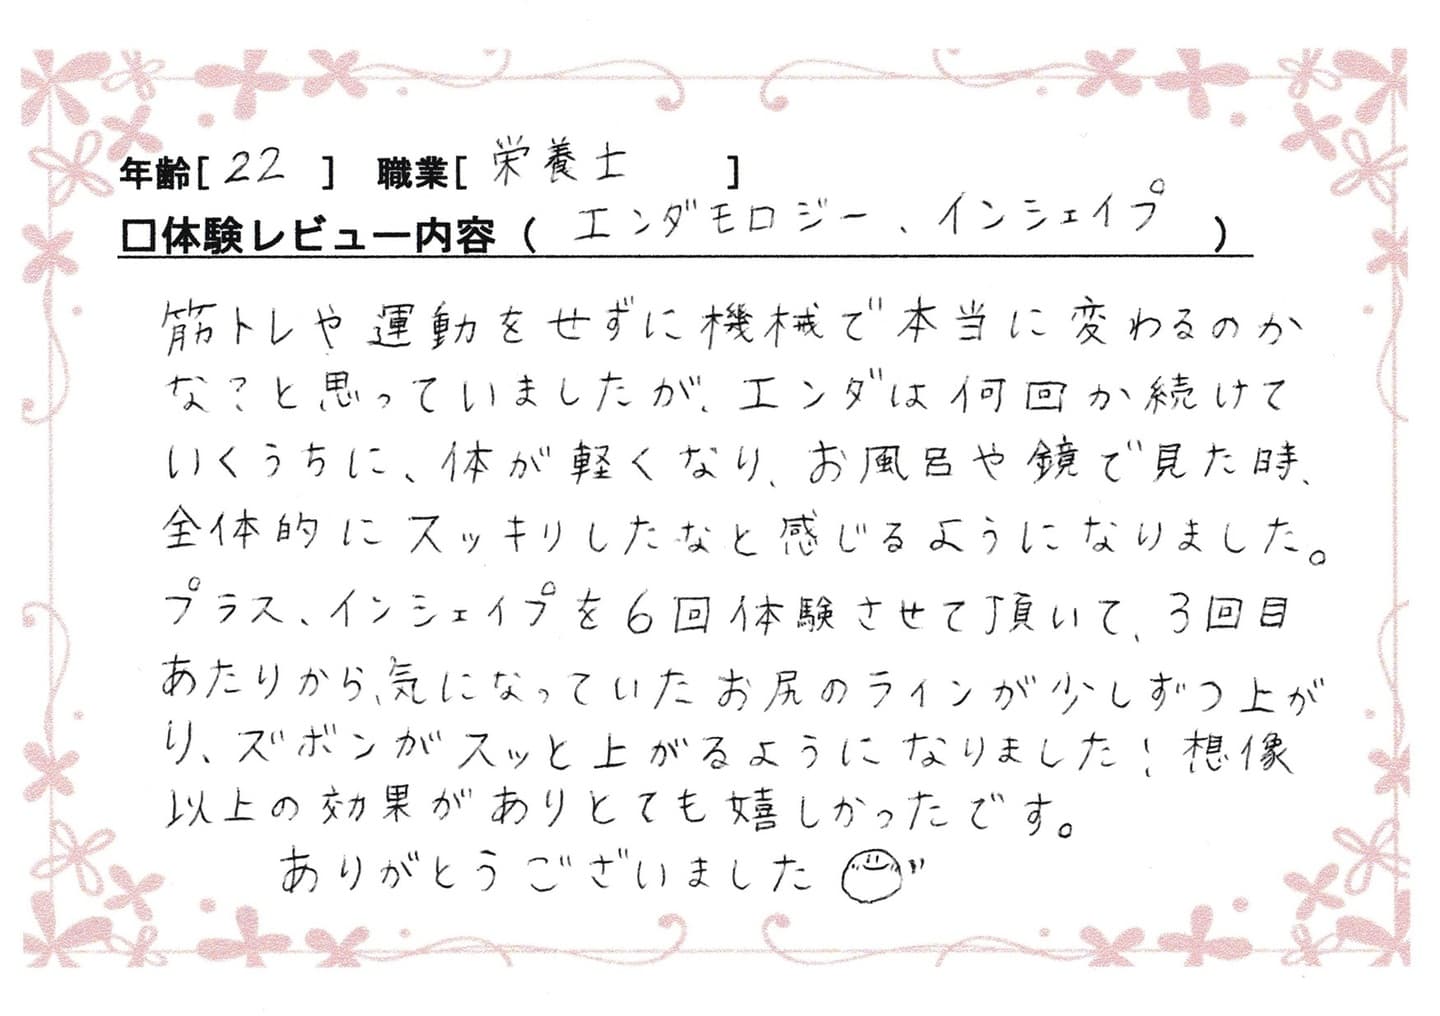 年齢[ 22 ] 職業[ 栄養士 ]
□体験レビュー内容( エンダモロジー、インシェイプ )
筋トレや運動をせずに機械で本当に変わるのか
な?と思っていましたが、エンダは何回か続けて
いくうちに、体が軽くなり、お風呂や鏡で見た時、
全体的にスッキリしたなと感じるようになりました。
プラス、インシェイプを6回体験させて頂いて、3回目
あたりから、気になっていたお尻のラインが少しずつ上が
り、ズボンがスッと上がるようになりました!想像
以上の効果がありとても嬉しかったです。
ありがとうございました